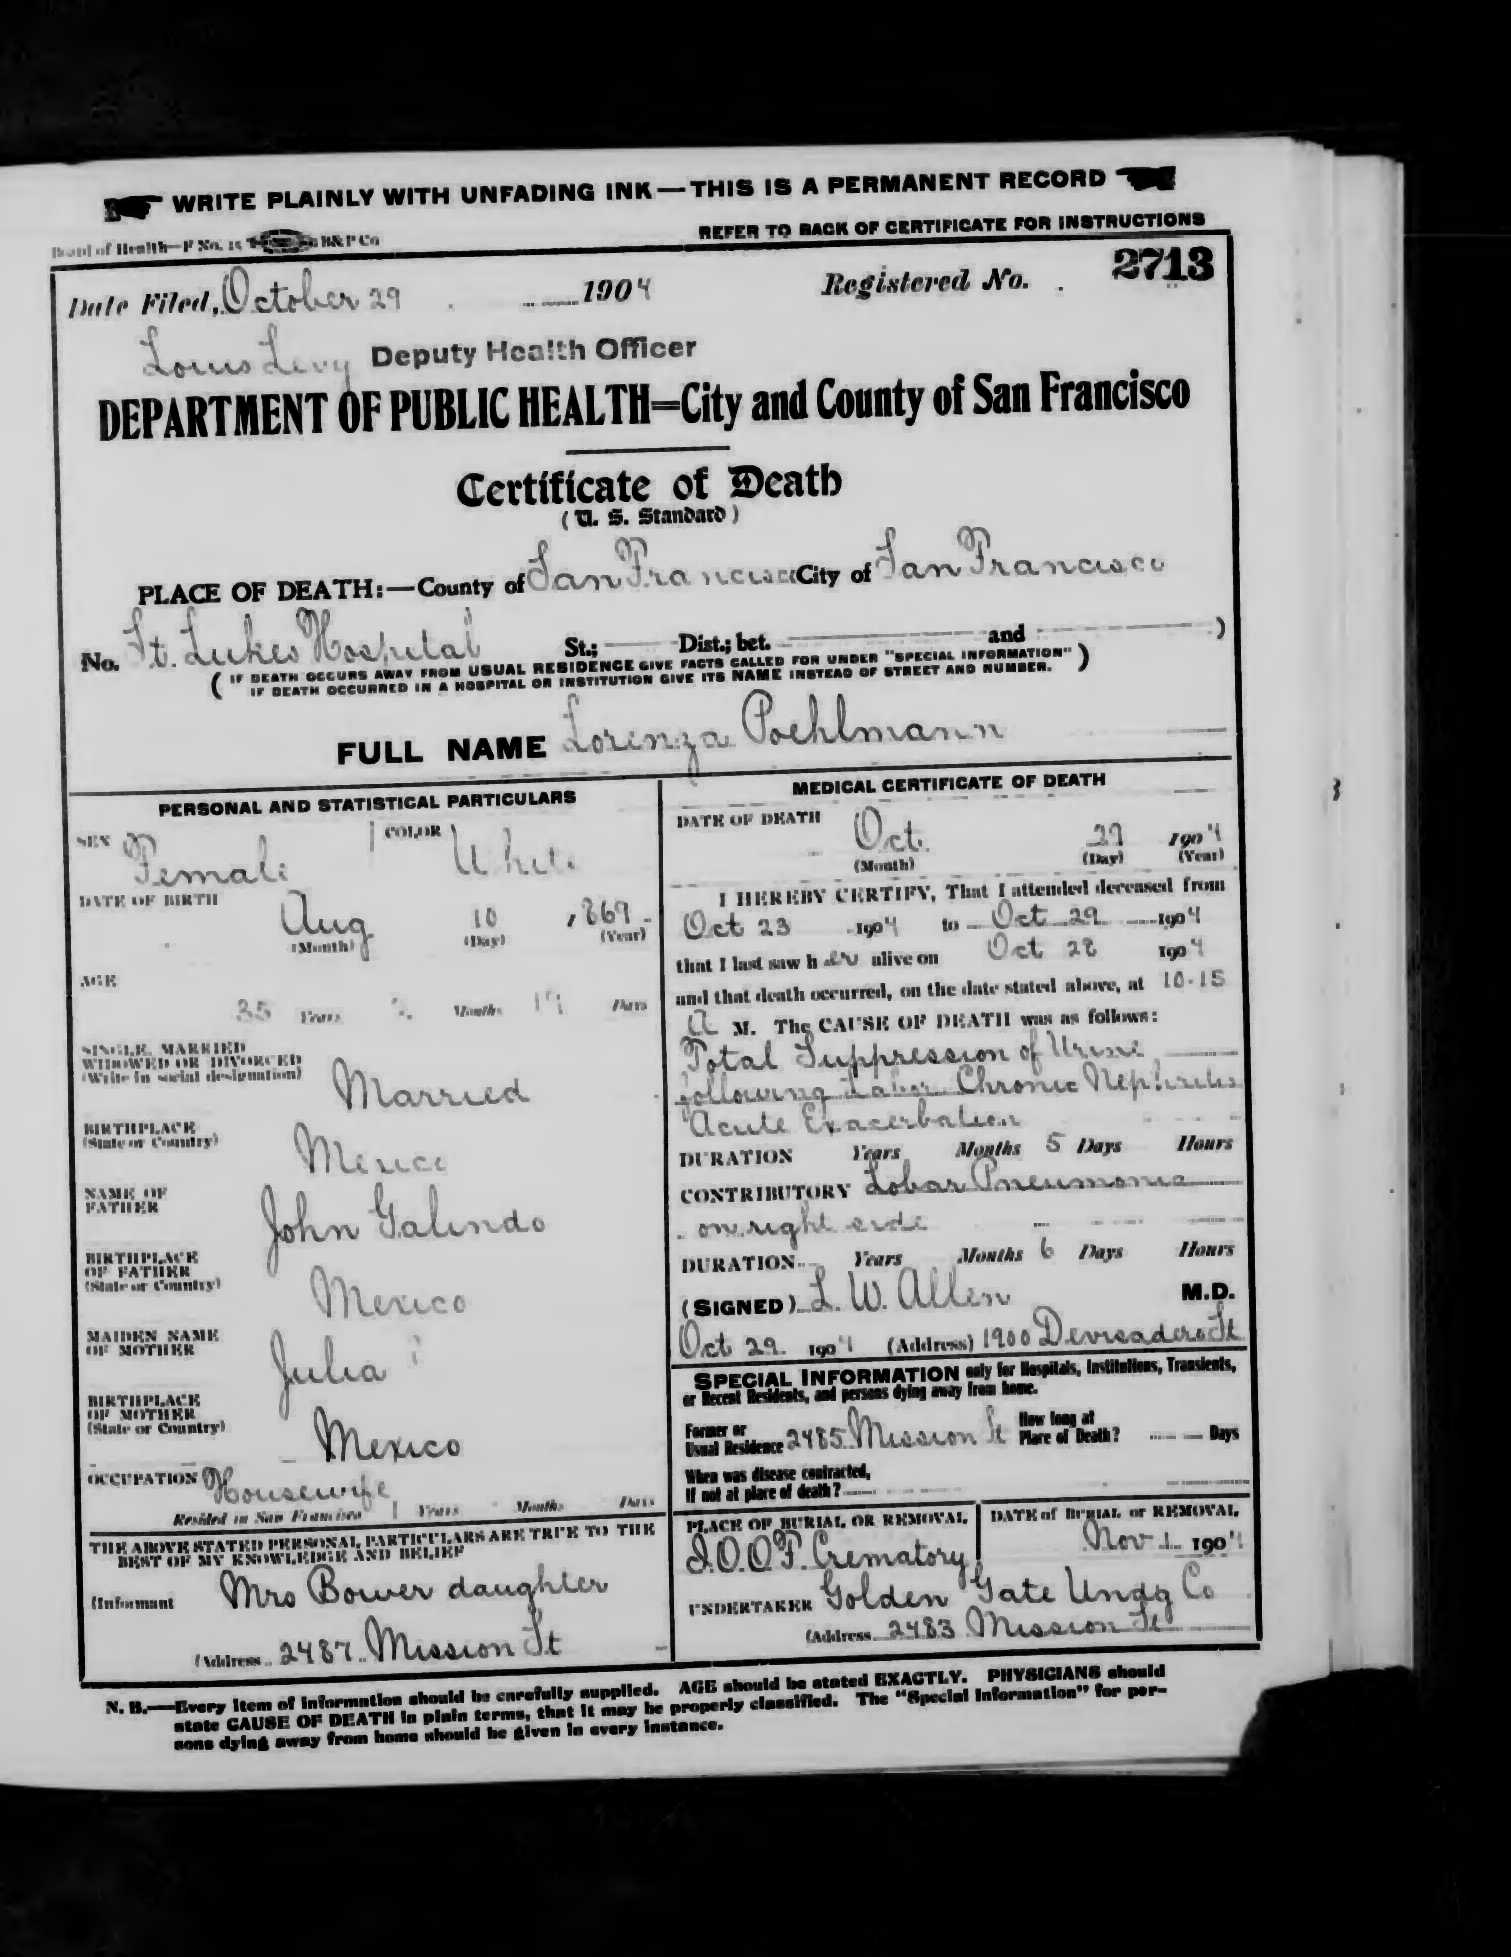 WRITE PLAINLY WITH UNFADING INK—THIS IS A PERMANENT RECORD
Board of Health—F No. 15 B&P Co
REFER TO BACK OF CERTIFICATE FOR INSTRUCTIONS
Date Filed, October 29 1904 Registered No. 2713
Louis Levy Deputy Health Officer
DEPARTMENT OF PUBLIC HEALTH=City and County of San Francisco
Certificate of Death
(U. S. Standard)
PLACE OF DEATH:—County of San Francisco City of San Francisco
No. St. Lukes Hospital St.; Dist.; bet. and )
( IF DEATH OCCURS AWAY FROM USUAL RESIDENCE GIVE FACTS CALLED FOR UNDER "SPECIAL INFORMATION" )
IF DEATH OCCURRED IN A HOSPITAL OR INSTITUTION GIVE ITS NAME INSTEAD OF STREET AND NUMBER.
FULL NAME Lorenza Poehlmann
PERSONAL AND STATISTICAL PARTICULARS
SEX Female COLOR White
DATE OF BIRTH Aug 10 1869
(Month) (Day) (Year)
AGE
35 Years 2 Months 19 Days
SINGLE, MARRIED
WIDOWED OR DIVORCED
(Write in social designation) Married
BIRTHPLACE
(State or Country) Mexico
NAME OF
FATHER John Galindo
BIRTHPLACE
OF FATHER
(State or Country) Mexico
MAIDEN NAME
OF MOTHER Julia ?
BIRTHPLACE
OF MOTHER
(State or Country) Mexico
OCCUPATION Housewife
Resided in San Francisco 1 Years Months Days
THE ABOVE STATED PERSONAL PARTICULARS ARE TRUE TO THE
BEST OF MY KNOWLEDGE AND BELIEF
(Informant Mrs Bower daughter
(Address 2487 Mission St
MEDICAL CERTIFICATE OF DEATH
DATE OF DEATH Oct. 29 1904
(Month) (Day) (Year)
I HEREBY CERTIFY, That I attended deceased from
Oct 23 1904 to Oct 29 1904
that I last saw her alive on Oct 28 1904
and that death occurred, on the date stated above, at 10-15
A M. The CAUSE OF DEATH was as follows:
Total Suppression of Urine
following Labor. Chronic Nephritis
Acute Exacerbation
DURATION Years Months 5 Days Hours
CONTRIBUTORY Lobar Pneumonia
on right side
DURATION Years Months 6 Days Hours
(SIGNED) L. W. Allen M.D.
Oct 29 1904 (Address) 1900 Devisadero St
SPECIAL INFORMATION only for Hospitals, Institutions, Transients,
or Recent Residents, and persons dying away from home.
Former or
Usual Residence 2485 Mission St How long at
Place of Death? Days
When was disease contracted,
If not at place of death?
PLACE OF BURIAL OR REMOVAL DATE of BURIAL or REMOVAL
I.O.O.F. Crematory Nov 1 1904
UNDERTAKER Golden Gate Undg Co
(Address 2483 Mission St
N. B.—Every item of information should be carefully supplied. AGE should be stated EXACTLY. PHYSICIANS should
state CAUSE OF DEATH in plain terms, that it may be properly classified. The "Special Information" for per-
sons dying away from home should be given in every instance.